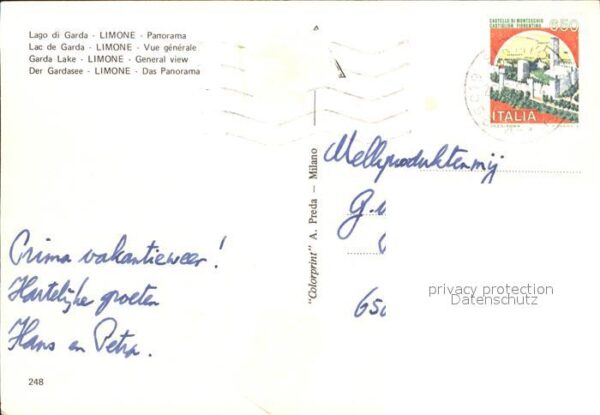 Lago di Garda - LIMONE - Panorama
Lac de Garda - LIMONE - Vue générale
Garda Lake - LIMONE - General view
Der Gardasee - LIMONE - Das Panorama
CASTELLO DI MONTECCHIO
CASTIGLION FIORENTINO
650
ITALIA
Prima vakantieweer!
Hartelijke groeten
Hans en Petra.
248
"Colorprint" A. Preda - Milano
Melkproduktenmij
G.
650
privacy protection
Datenschutz